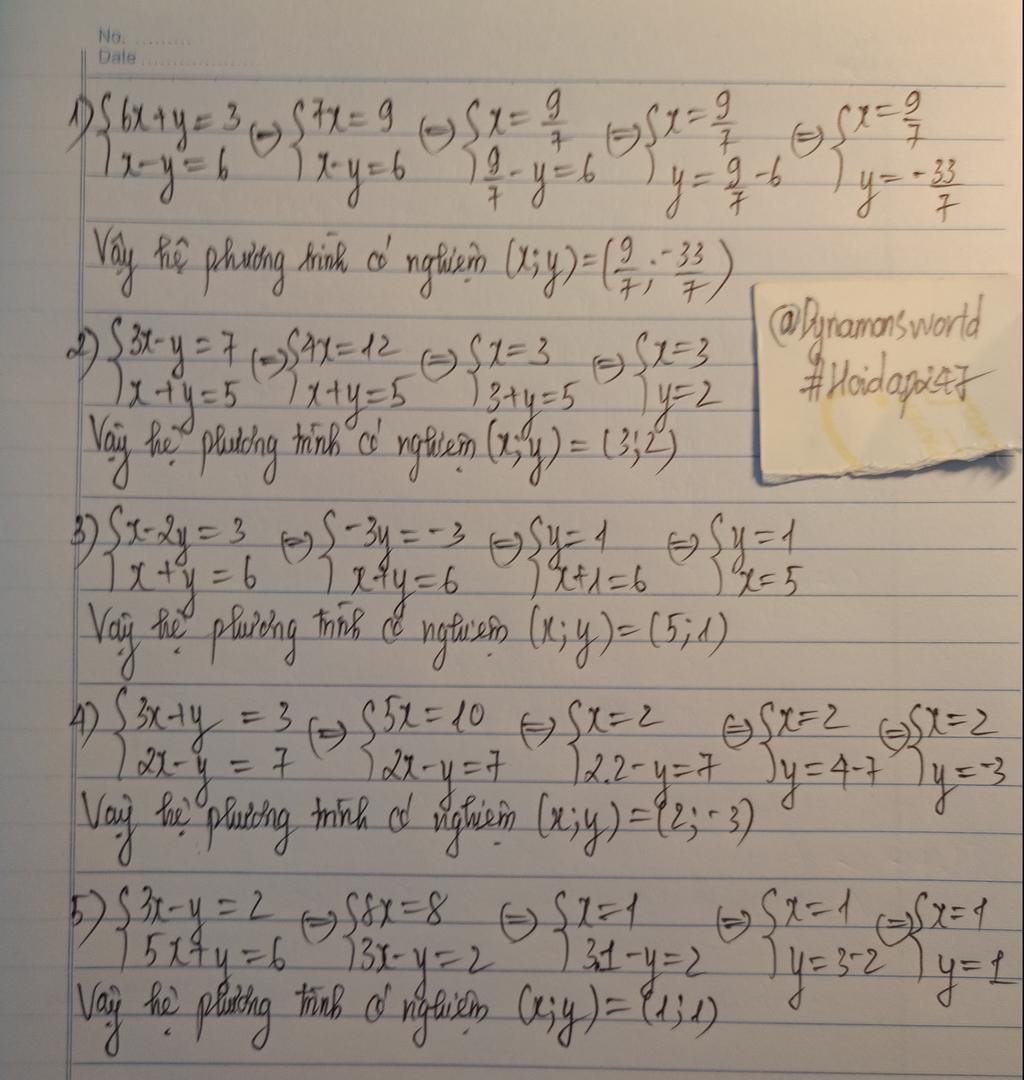 No. ..........
Date ....................
1) {6x+y=3 ⇔ {7x=9 ⇔ {x=9/7 ⇔ {x=9/7 ⇔ {x=9/7
{x-y=6 {x-y=6 {9/7-y=6 {y=9/7-6 {y=-33/7
Vậy hệ phương trình có nghiệm (x;y)=(9/7;-33/7)
@Dynamonsworld
#Hoidap247
2) {3x-y=7 ⇔ {4x=12 ⇔ {x=3 ⇔ {x=3
{x+y=5 {x+y=5 {3+y=5 {y=2
Vậy hệ phương trình có nghiệm (x;y)=(3;2)
3) {x-2y=3 ⇔ {-3y=-3 ⇔ {y=1 ⇔ {y=1
{x+y=6 {x+y=6 {x+1=6 {x=5
Vậy hệ phương trình có nghiệm (x;y)=(5;1)
4) {3x+y=3 ⇔ {5x=10 ⇔ {x=2 ⇔ {x=2 ⇔ {x=2
{2x-y=7 {2x-y=7 {2.2-y=7 {y=4-7 {y=-3
Vậy hệ phương trình có nghiệm (x;y)=(2;-3)
5) {3x-y=2 ⇔ {8x=8 ⇔ {x=1 ⇔ {x=1 ⇔ {x=1
{5x+y=6 {3x-y=2 {3.1-y=2 {y=3-2 {y=1
Vậy hệ phương trình có nghiệm (x;y)=(1;1)